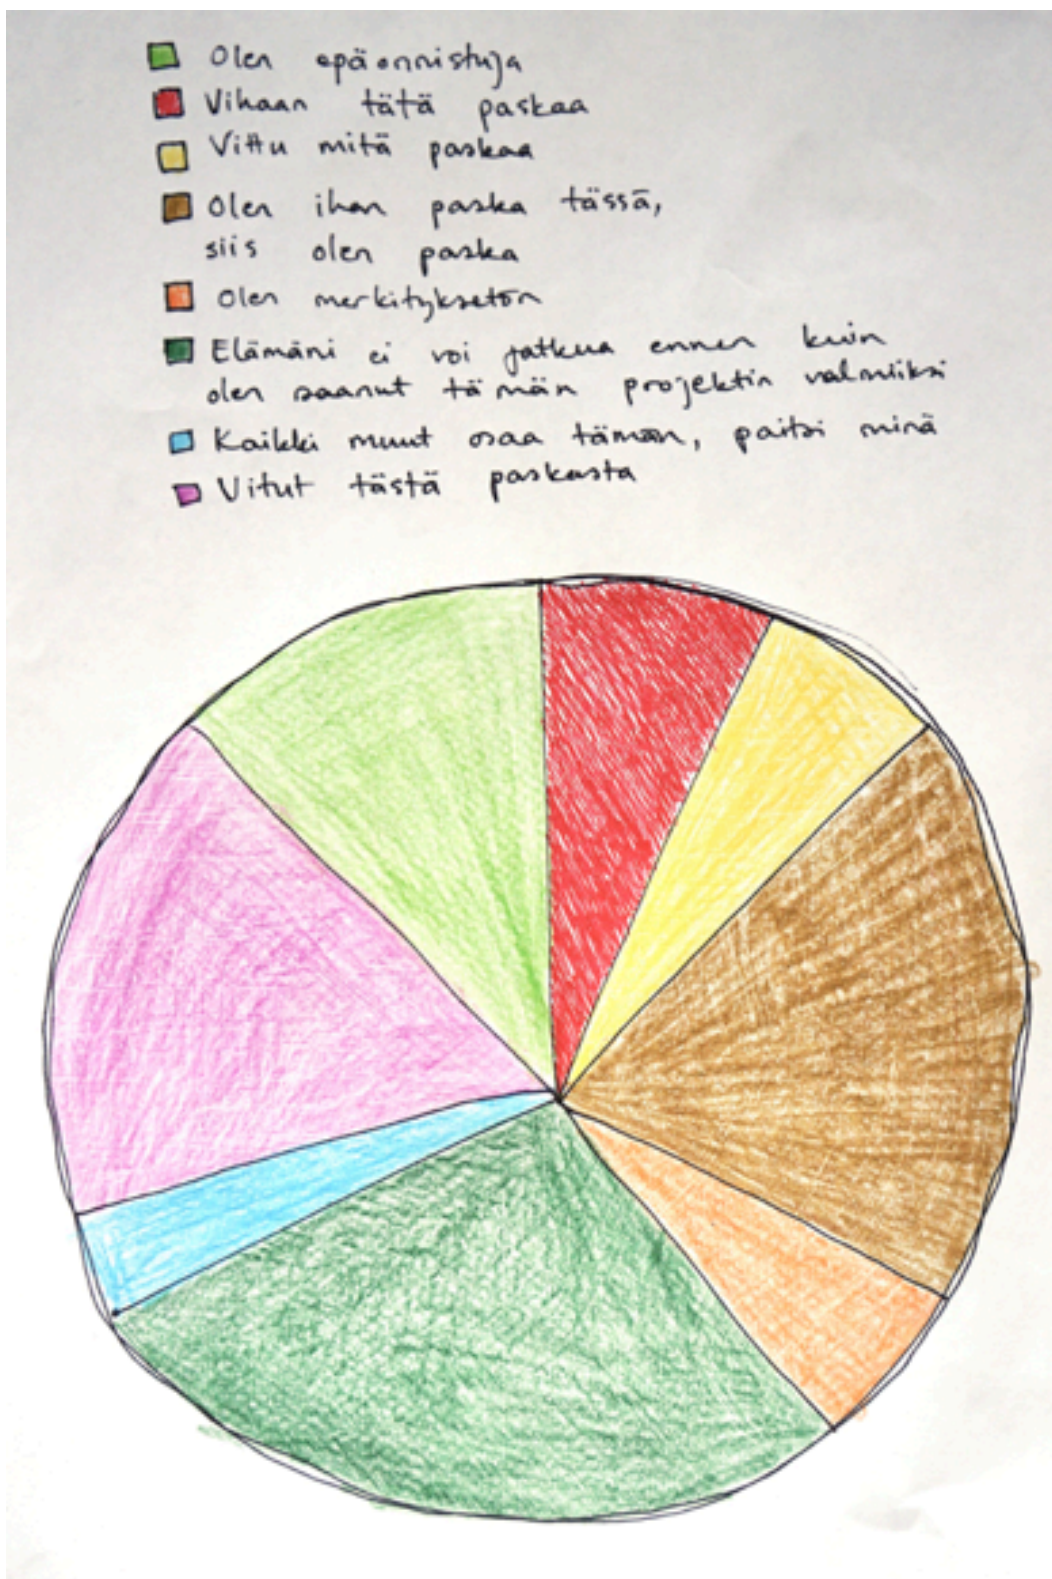 Olen epäonnistuja
Vihaan tätä paskaa
Vittu mitä paskaa
Olen ihan paska tässä,
siis olen paska
Olen merkityksetön
Elämäni ei voi jatkua ennen kuin
olen saanut tämän projektin valmiiksi
Kaikki muut osaa tämän, paitsi minä
Vitut tästä paskasta